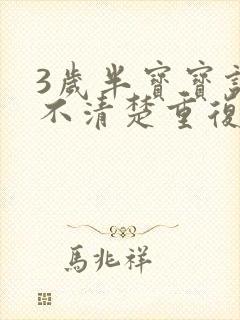 3歲半寶寶
不清楚重復
馬兆祥